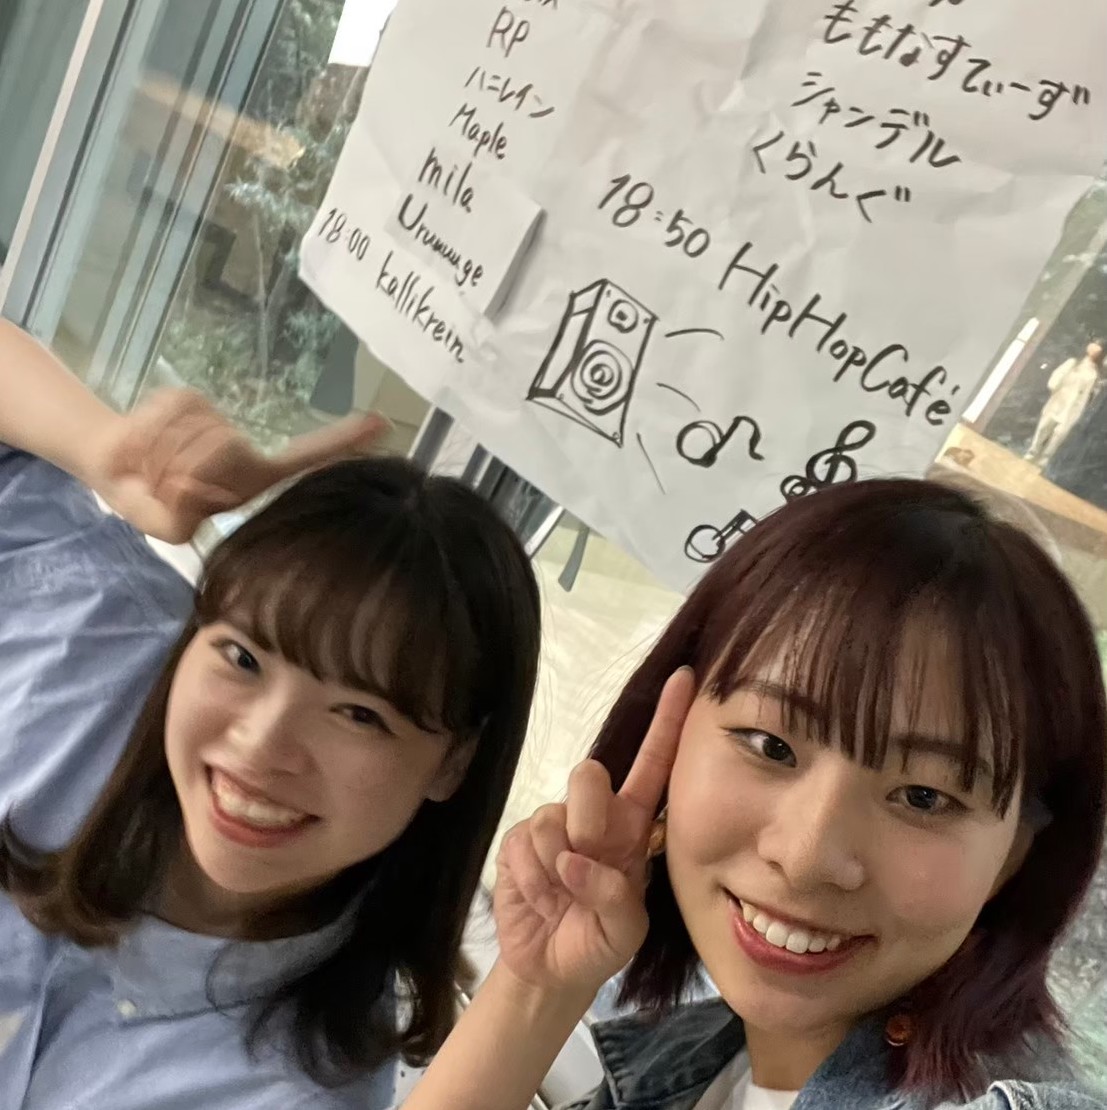 RP
ハニレイン
Maple
mila
Uruuuuge
18:00 kallikrein
ももなすてぃーず
シャンデル
くらんぐ
18:50 HipHopCafé